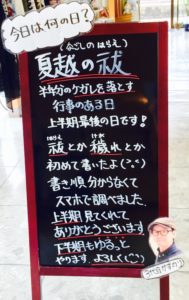 今日は何の日?
(なごしの はらえ)
夏越の祓
半年分のケガレを落とす
行事のある日
上半期最後の日です!
はらえ けが
祓とか穢れとか
初めて書いたよ(^^)
書き順分からなくて
スマホで調べました.
上半期見てくれて
ありがとうございます
下半期もゆるっと
やります.よろしく(^^)